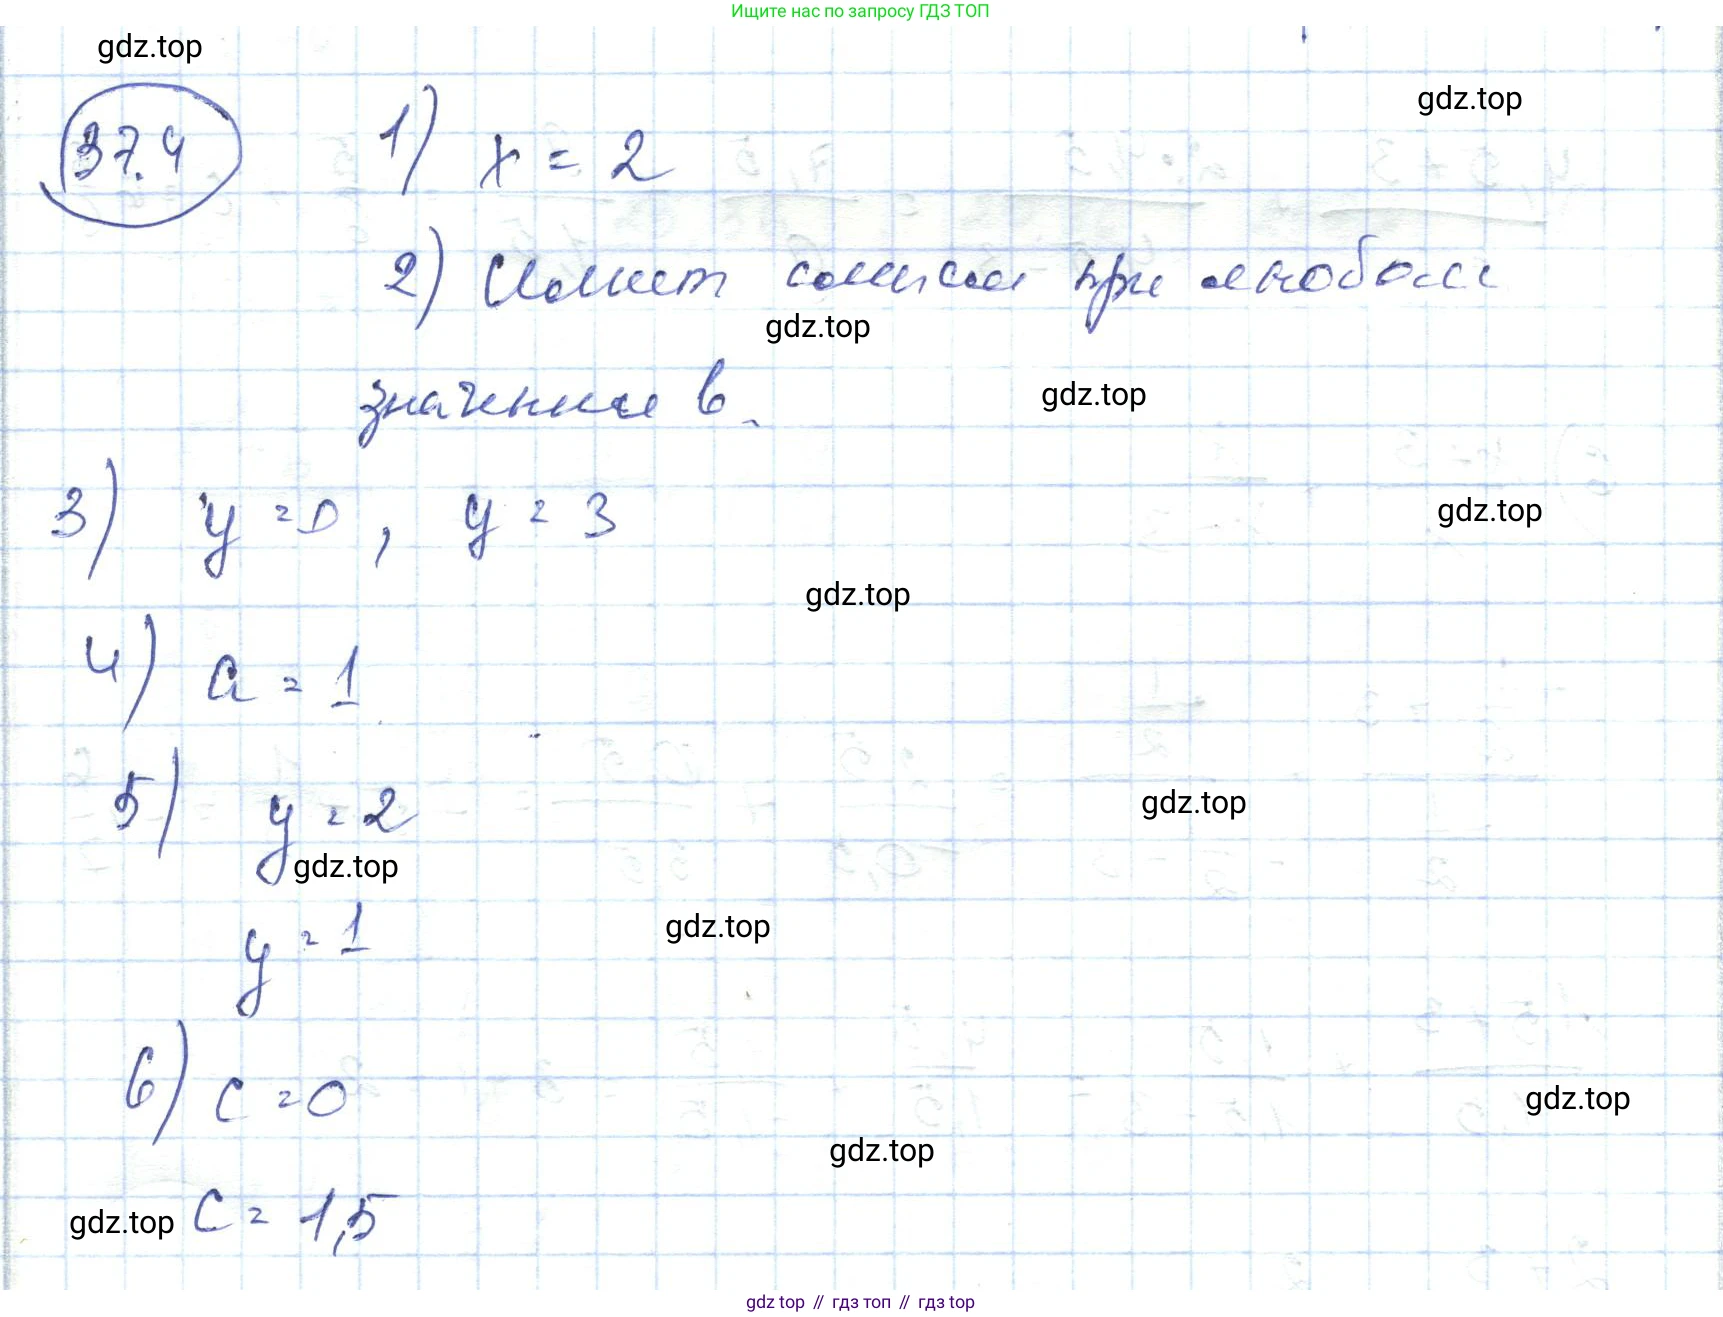 Ищите нас по запросу ГДЗ ТОП
gdz.top
gdz.top
37.4 1) x = 2
2) Имеет смысл при любом
gdz.top
значении в.
gdz.top
3) y = 0, y = 3
gdz.top
gdz.top
4) a = 1
5) y = 2
gdz.top
gdz.top
y = 1
gdz.top
6) c = 0
gdz.top
gdz.top
c = 1,5
gdz.top
gdz top // гдз топ // gdz top